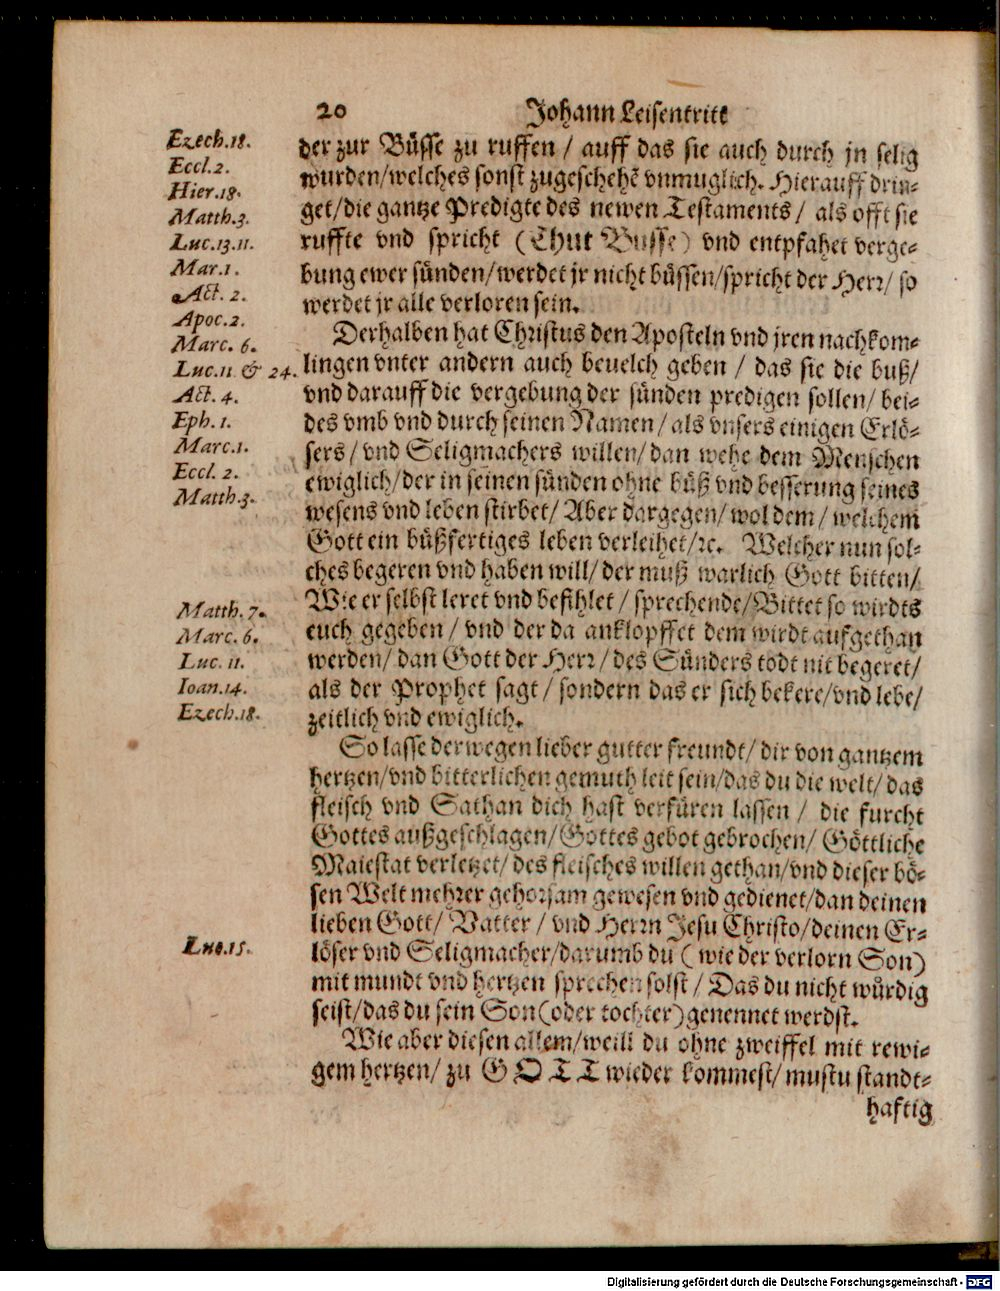 20 Johann Leisentritt
Ezech.18.
Eccl.2.
Hier.18.
Matth.3.
Luc.13.11.
Mar.1.
Act. 2.
Apoc.2.
Marc. 6.
Luc.11 & 24.
Act. 4.
Eph. 1.
Marc.1.
Eccl. 2.
Matth.3.
Matth. 7.
Marc. 6.
Luc. 11.
Ioan.14.
Ezech.18.
Luc.15.
der zur Büsse zu ruffen / auff das sie auch durch jn selig
wurden/welches sonst zugeschehē vnmuglich. Hierauff drin-
get/die gantze Predigte des newen Testaments / als offt sie
ruffte vnd spricht (Thut Busse) vnd entpfahet verge-
bung ewer sünden/werdet jr nicht büssen/spricht der Herr/ so
werdet jr alle verloren sein.
Derhalben hat Christus den Aposteln vnd jren nachkom-
lingen vnter andern auch beuelch geben / das sie die buß/
vnd darauff die vergebung der sünden predigen sollen/ bei-
des vmb vnd durch seinen Namen/ als vnsers einigen Erlö-
sers / vnd Seligmachers willen/ dan wehe dem Menschen
ewiglich/der in seinen sünden ohne büß vnd besserung seines
wesens vnd leben stirbet/ Aber dargegen/ wol dem / welchem
Gott ein büßfertiges leben verleihet/ꝛc. Welcher nun sol-
ches begeren vnd haben will/ der muß warlich Gott bitten/
Wie er selbst leret vnd befihlet / sprechende/Bittet so wirdts
euch gegeben / vnd der da anklopffet dem wirdt aufgethan
werden/ dan Gott der Herr / des Sünders todt nit begeret/
als der Prophet sagt / sondern das er sich bekere/vnd lebe/
zeitlich vnd ewiglich.
So lasse derwegen lieber gutter freundt/ dir von gantzem
hertzen/vnd bitterlichen gemuth leit sein/das du die welt/ das
fleisch vnd Sathan dich hast verfüren lassen / die furcht
Gottes außgeschlagen/Gottes gebot gebrochen/ Göttliche
Maiestat verletzet/ des fleisches willen gethan/vnd dieser bö-
sen Welt mehrer gehorsam gewesen vnd gedienet/dan deinen
lieben Gott/ Vatter / vnd Herrn Jesu Christo/deinen Er-
löser vnd Seligmacher/darumb du ( wie der verlorn Son)
mit mundt vnd hertzen sprechen solst / Das du nicht wůrdig
seist/das du sein Son(oder tochter)genennet werdst.
Wie aber diesen allem/weill du ohne zweiffel mit rewi-
gem hertzen/ zu GOTT wieder kommest/ mustu standt-
haftig
Digitalisierung gefördert durch die Deutsche Forschungsgemeinschaft - DFG